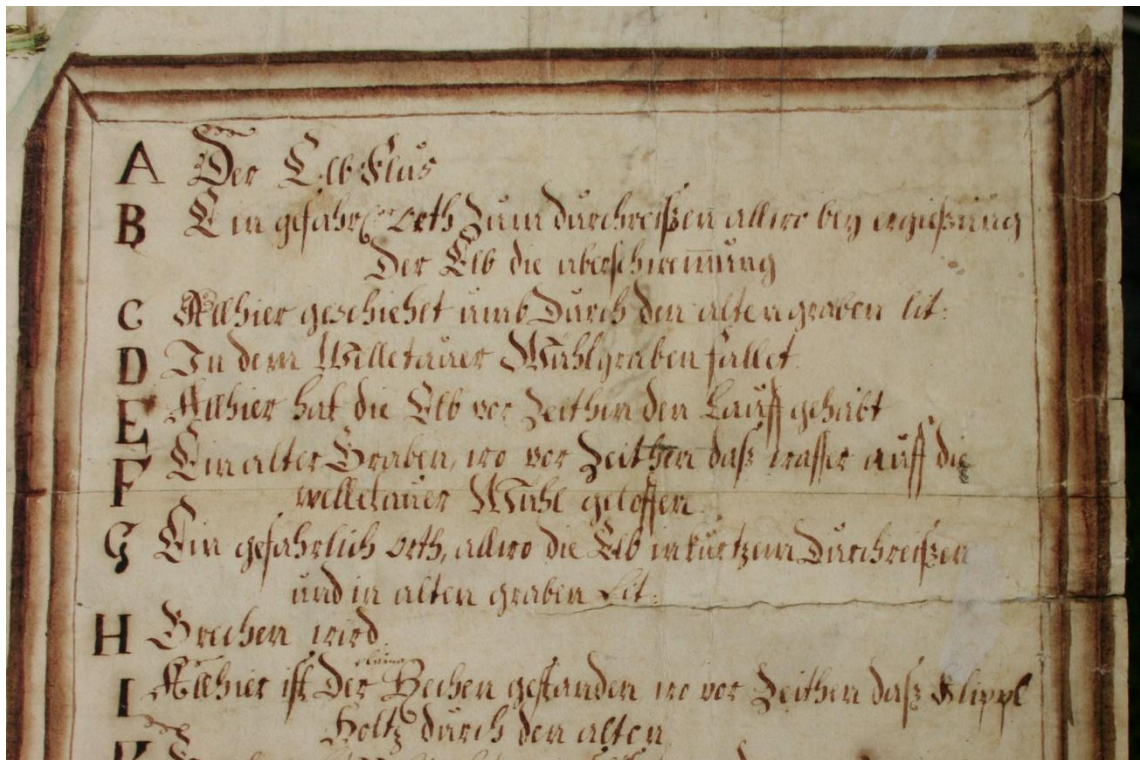 A Der Elb Flus
B Ein gefahrl. Orth Zum durchreißen allwo bey ergießung
Der Elb die überschwemung
C Allhier geschiehet umb Durch den alten graben lit:
D In dem Welletauer Mühlgraben fallet
E Allhier hat die Elb vor Zeithen den Lauff gehabt
F Ein alter Graben, wo vor Zeithen daß wasser auff die
welletauer Mühl geloffen
G Ein gefährlich orth, allwo die Elb in kurtzem Durchreißen
und in alten graben Lit:
H Brechen wird
I Allhier ist Der Rechen gestanden wo vor Zeithen daß Klippl
Holtz durch den alten